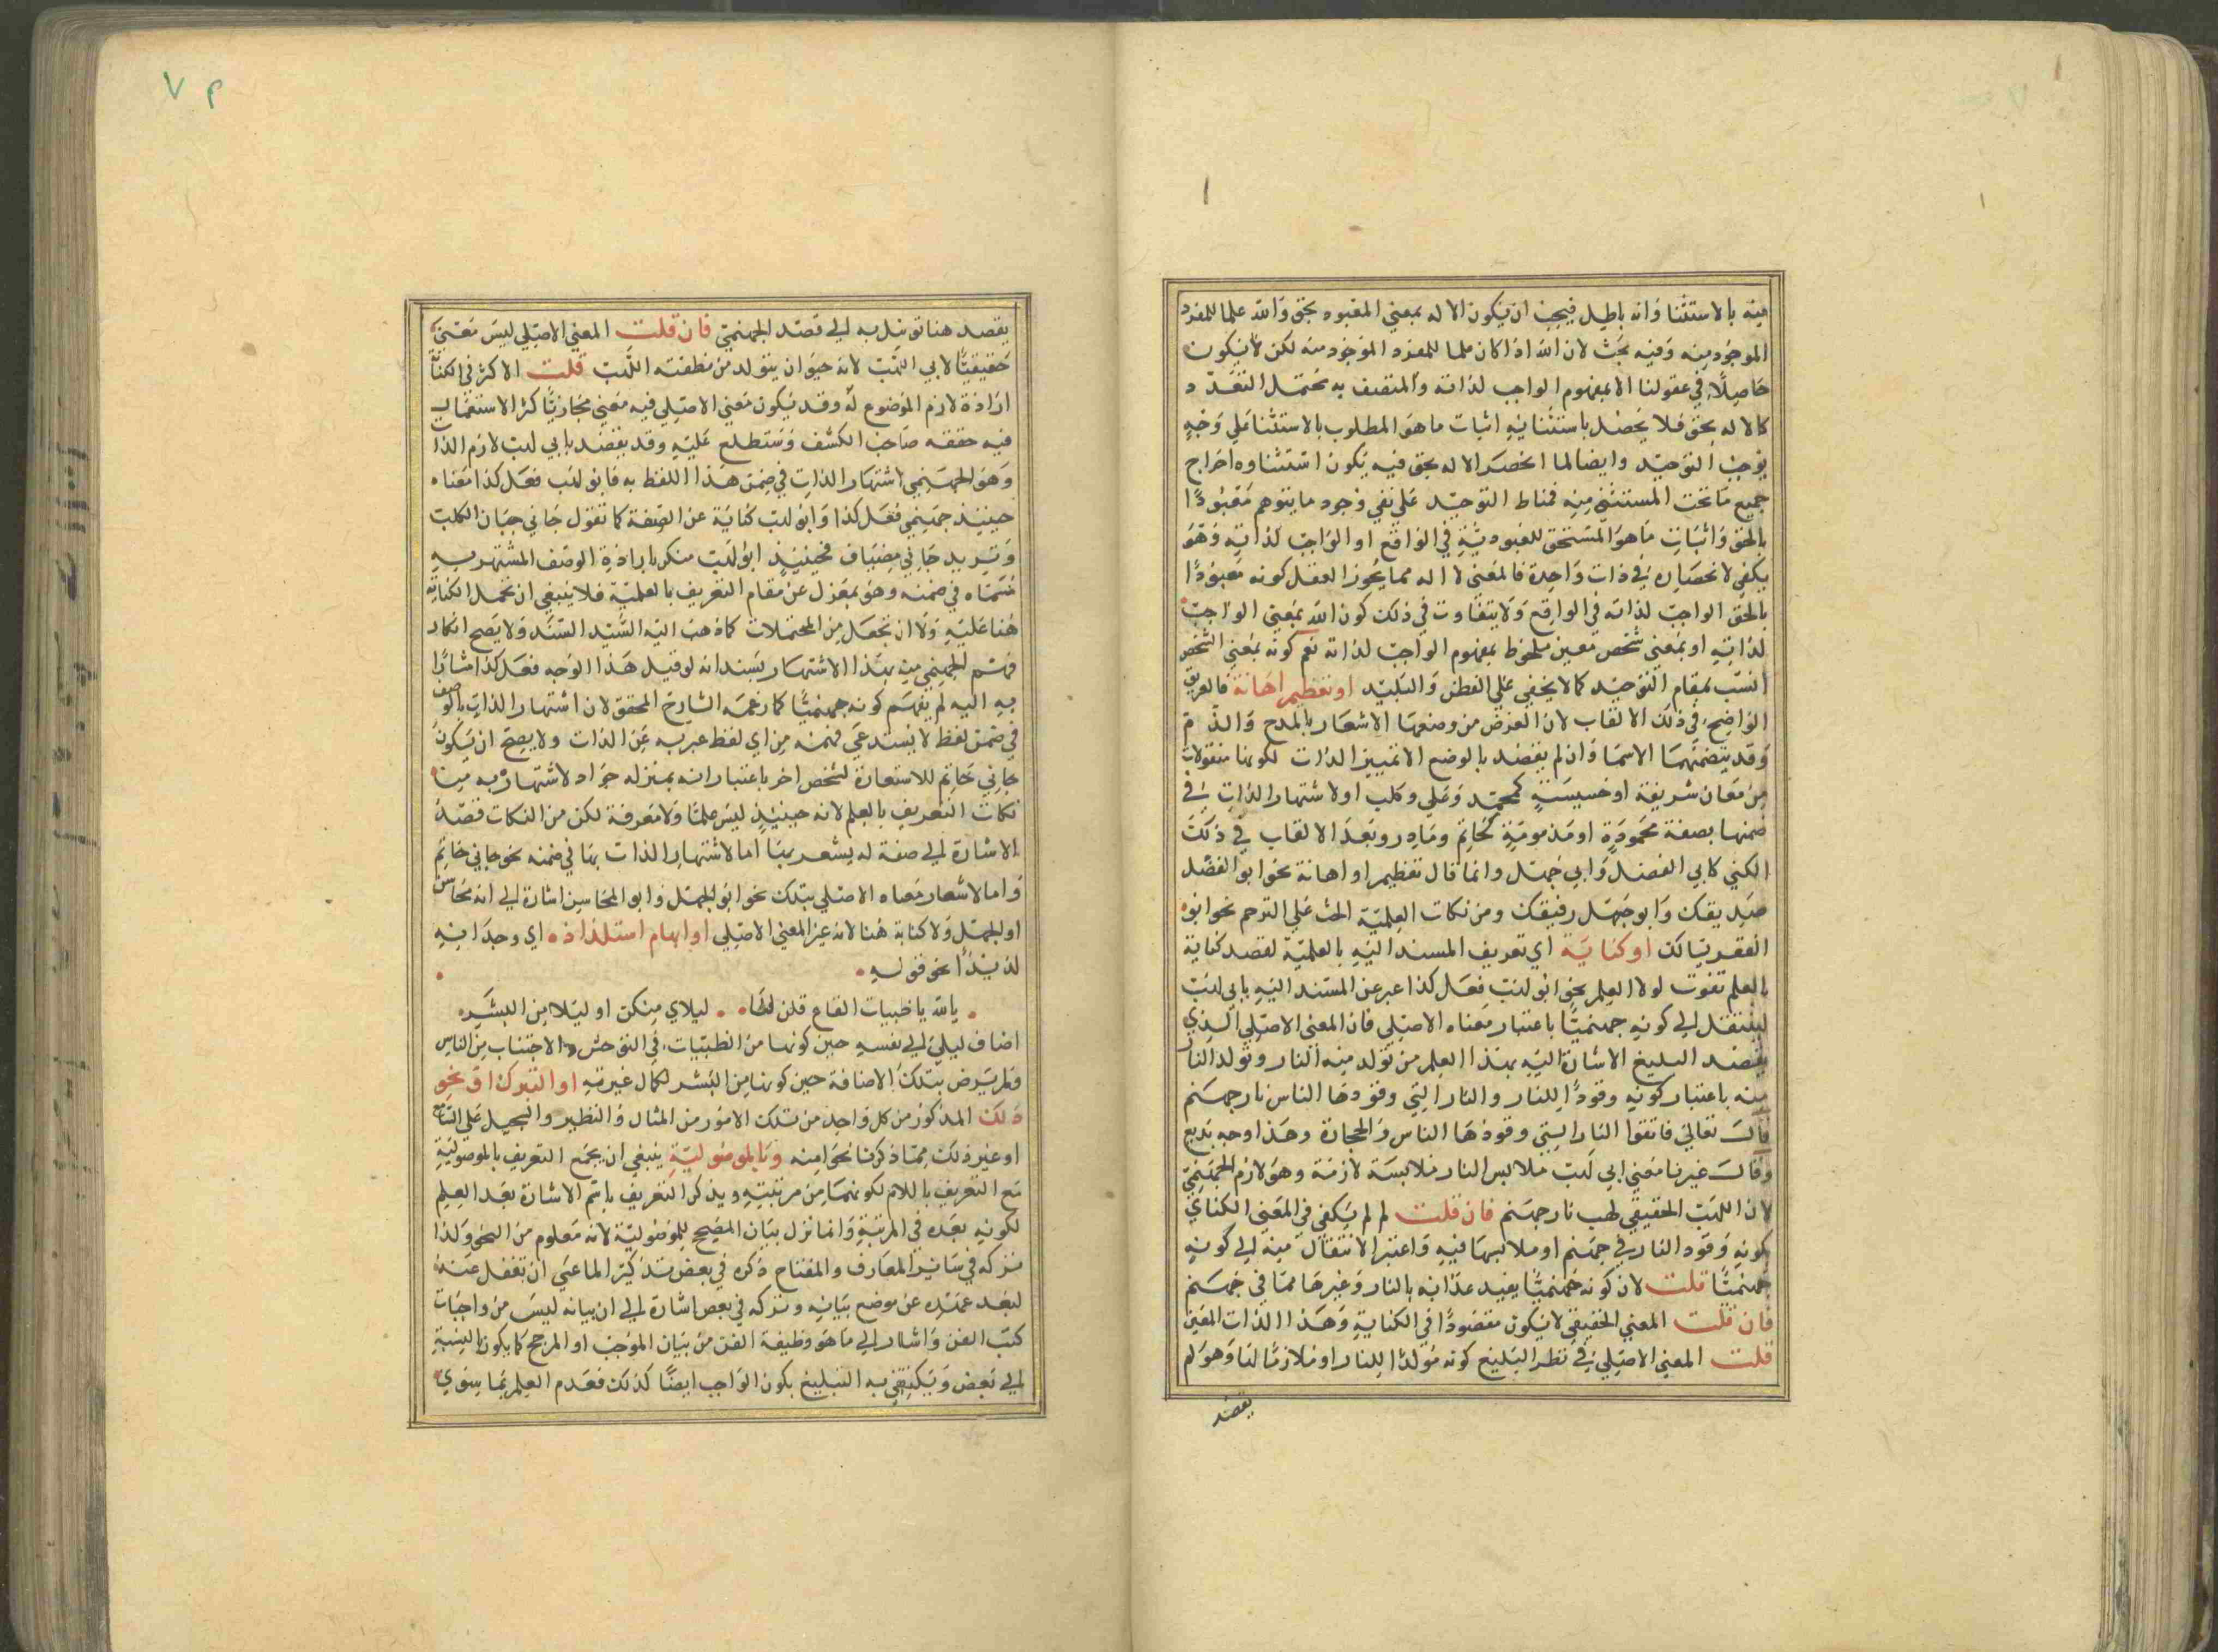 منه بالاستثنا وانه باطل فيجب ان يكون الاله بمعني المعبود بحق والله علما للمفرد
الموجود منه وفيه بحث لان الله اذا كان علما للمفرد الموجود منه لكن لا يكون
حاصلا في عقولنا الا بمفهوم الواجب لذاته والمتصف به محتمل التعدد
كالاله بحق فلا يحصل باستثنائه اثبات ما هو المطلوب بالاستثنا علي وجه
يوجب التوحيد وايضا لما انحصر الاله بحق فيه يكون استثناوه اخراج
جميع ما تحت المستثني منه فمناط التوحيد علي نفي وجود ما يتوهم معبودا
بالحق واثبات ما هو المستحق للعبودية في الواقع او الواجب لذاته وهو
يكفي لانحصاره في ذات واحدة فالمعني لا اله مما يجوز العقل كونه معبودا
بالحق الواجب لذاته في الواقع ولا يتفاوت في ذلك كون الله بمعني الواجب
لذاته او بمعني شخص معين ملحوظ بمفهوم الواجب لذاته نعم كونه بمعني الشخص
انسب بمقام التوحيد كما لا يخفي علي الفطن والبليد او تعظيم اهانة فالعريق
الواضح في ذلك الالقاب لان الغرض من وضعها الاشعار بالمدح والذم
وقد يتضمنهما الاسما وان لم يقصد بالوضع الا تمييز الذات لكونها منقولات
من معان شريفة او خسيسة كمحمد وعلي وكلب او لاشتهار الذات في
ضمنها بصفة محمودة او مذمومة كحاتم ومادر وبعد الالقاب في ذلك
الكني كابي الفضل وابي جهل وانما قال تعظيم او اهانة نحو ابو الفضل
صديقك وابو جهل رفيقك ومن نكات العلمية الحث علي الترحم نحو ابو
الفقر يسالك او كناية اي تعريف المسند اليه بالعلمية لقصد كناية
بالعلم تفوت لولا العلم نحو ابو لهب فعل كذا عبر عن المسند اليه بابي لهب
لينتقل الي كونه جهنميا باعتبار معناه الاصلي فان المعني الاصلي الذي
يقصد البليغ الاشارة اليه بهذا العلم من تولد منه النار وتولد النار
منه باعتبار كونه وقودا للنار والنار التي وقودها الناس نار جهنم
قال تعالي فاتقوا النار التي وقودها الناس والحجارة وهذا وجه بديع
وقال غيرنا معني ابي لهب ملابس النار ملابسة لازمة وهو لازم الجهنمي
لان اللهب الحقيقي لهب نار جهنم فان قلت لم لم يكفي في المعني الكنائي
كونه وقود النار في جهنم او ملابسها فيه واعتبر الانتقال منه الي كونه
جهنميا قلت لان كونه جهنميا يفيد عذابه بالنار وغيرها مما في جهنم
فان قلت المعني الحقيقي لا يكون مقصودا في الكناية وهذا الذات المعين
قلت المعني الاصلي في نظر البليغ كونه مولدا للنار او ملازما لها وهو لم
يقصد
يقصد هنا توسل به الي قصد الجهنمي فان قلت المعني الاصلي ليس معني
حقيقيا لابي اللهب لانه حيوان يتولد من نطفته اللهب قلت الاكثر في الكناية
ارادة لازم الموضوع له وقد يكون معني الاصلي فيه معني مجازيا كثر الاستعمال
فيه حققه صاحب الكشف وستطلع عليه وقد يقصد بابي لهب لازم الذا
وهو الجهنمي اشتهار الذات في ضمن هذا اللفظ به فابو لهب فعل كذا معناه
حينئذ جهنمي فعل كذا وابو لهب كناية عن الصفة كما تقول جاني جبان الكلب
وتريد جاني مضياف فحينئذ ابو لهب منكر بارادة الوصف المشتهر به
مسماه في ضمنه وهو بمعزل عن مقام التعريف بالعلمية فلا ينبغي ان تحمل الكناية
هنا عليه ولا ان تجعل من المحتملات كما ذهب اليه السيد السند ولا يصح انكار
فهم الجهنمي من بهذا الاشتهار بسند انه لو قيل هذا الوجه فعل كذا مشارا
به اليه لم يفهم كونه جهنميا كما زعمه الشارح المحقق لان اشتهار الذات بالوصف
في ضمن لفظ لا يستدعي فهمه من اي لفظ عبر به عن الذات ولا يصح ان يكون
جاني حاتم للاستعارة لشخص اخر باعتبار انه بمنزله جواد لاشتهاره به من
نكات التعريف بالعلم لانه حينئذ ليس علما ولا معرفة لكن من النكات قصد
الاشارة الي صفة له يشعر بها اما لاشتهار الذات بها في ضمنه نحو جاني حاتم
واما لاشعار معناه الاصلي بتلك نحو ابو الجهل وابو المحاسن اشارة الي انه محاسن
او الجهل ولا كناية هنا لانه عين المعني الاصلي او ايهام استلذاذه اي وجدانه
لذيذا نحو قوله
بالله يا ظبيات القاع قلن لنا ليلاي منكن او ليلا من البشر
اضاف ليلي الي نفسه حين كونها من الظبيات في التوحش والاجتناب من الناس
ولم يرض بتلك الاضافة حين كونها من البشر لكمال غيرته او التبرك او نحو
ذلك المذكور من كل واحد من تلك الامور من المثال والنظير والتبجيل علي السامع
او غير ذلك مما ذكرنا نحوا منه وبالموصولية ينبغي ان يجمع التعريف بالموصولية
مع التعريف باللام لكونهما من مرتبته ويذكر التعريف باسم الاشارة بعد العلم
لكونه بعده في المرتبة وانما نزل بيان المصحح للموصولية لانه معلوم من النحو ولذا
تركه في سائر المعارف والمفتاح ذكره في بعض تذكيرا لما عسي ان تغفل عنه
لبعد عهده عن موضع بيانه وتركه في بعض اشارة الي ان بيانه ليس من واجبات
كتب الفن واشار الي ما هو وظيفة الفن من بيان الموجب او المرجح كما يكون بالنسبة
الي بعض ويكتفي به البليغ بكون الواجب ايضا كذلك فعدم العلم بما سوي